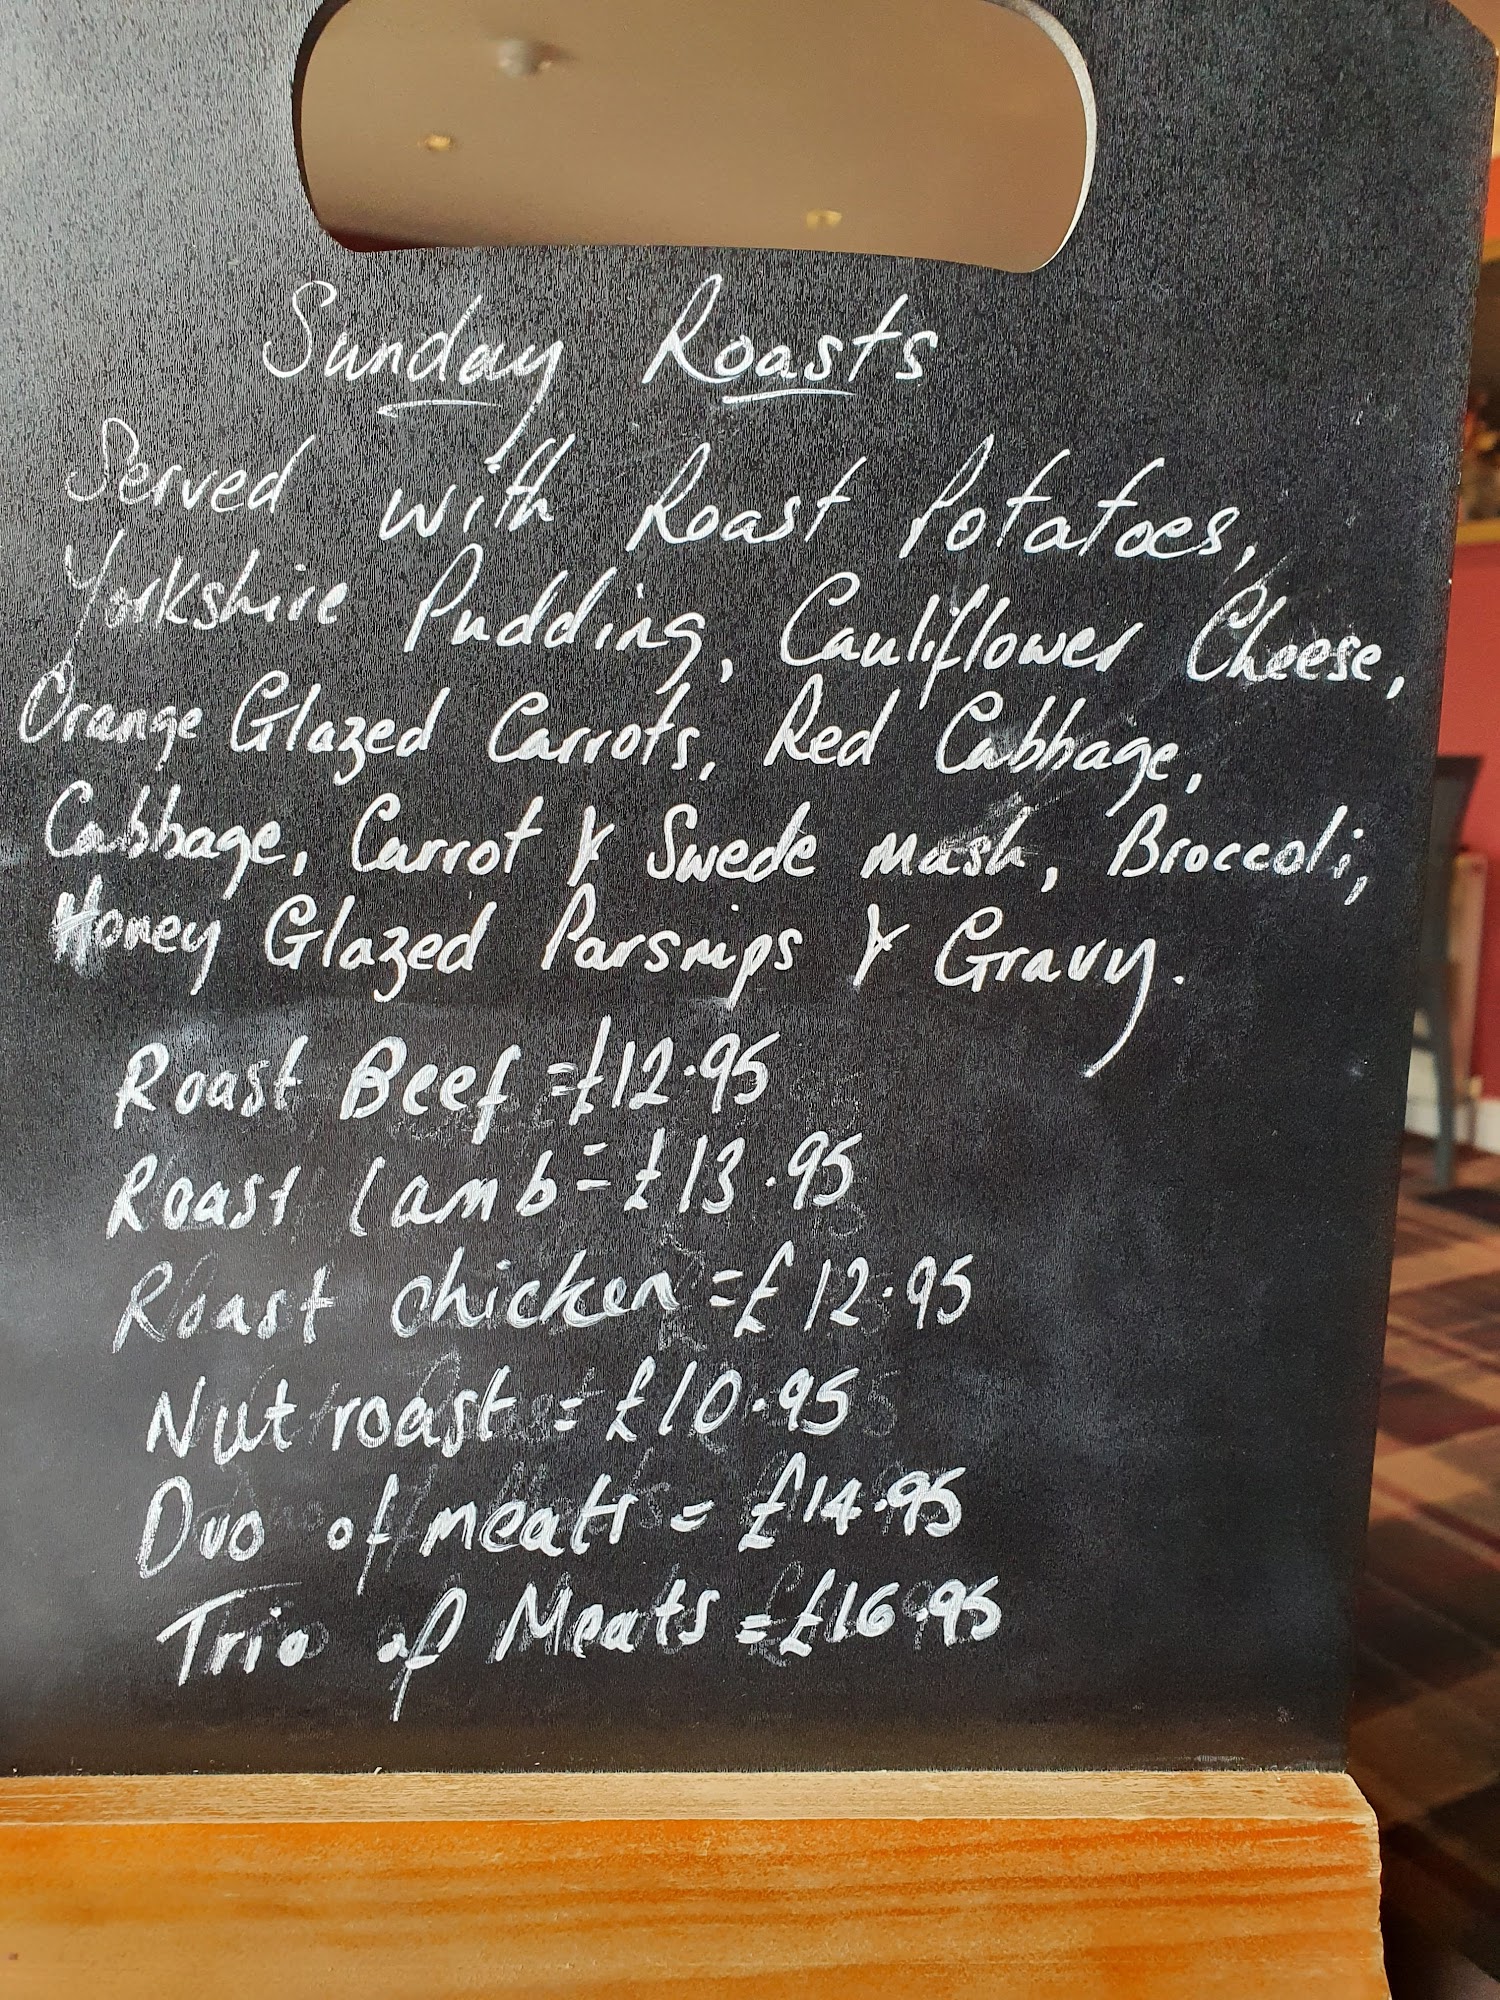 Sunday Roasts
Served with Roast Potatoes,
Yorkshire Pudding, Cauliflower Cheese,
Orange Glazed Carrots, Red Cabbage,
Cabbage, Carrot & Swede Mash, Broccoli,
Honey Glazed Parsnips & Gravy.
Roast Beef = £12.95
Roast Lamb = £13.95
Roast chicken = £12.95
Nut roast = £10.95
Duo of meats = £14.95
Trio of Meats = £16.95